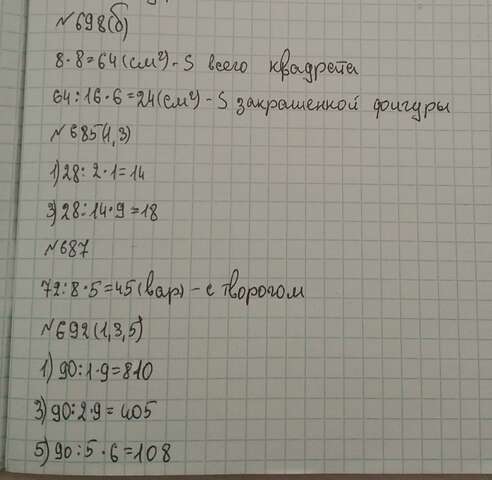 №698(б)
8·8=64(см²)-S всего квадрата
64:16·6=24(см²)-S закрашенной фигуры
№685(1,3)
1)28:2·1=14
3)28:14·9=18
№687
72:8·5=45(вар)-с творогом
№692(1,3,5)
1)90:1·9=810
3)90:2·9=405
5)90:5·6=108